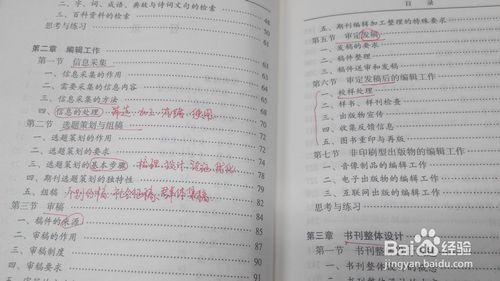 二、字、词、成语、典故与诗词文句的检索
三、百科资料的检索 61
思考与练习 63
第二章 编辑工作
第一节 信息采集
一、信息采集的作用
二、需要采集的信息内容
三、信息采集的方法
四、信息的处理 筛选、加工、流程、使用
第二节 选题策划与组稿
一、选题策划的作用
二、选题策划的要求 74
三、选题策划的基本步骤 74
四、期刊选题策划的独特性 77
五、组稿 个别约稿、社会征稿、群体集稿 79
第三节 审稿 82
一、稿件的来源 84
二、审稿的作用 84
三、审稿制度 85
四、审稿要求 87
91
目 录
五、期刊编辑加工整理的特殊要求
第五节 审定发稿
一、发稿的要求
二、稿件整理
三、稿件送审和发稿
第六节 审定发稿后的编辑工作
一、校样处理
二、样书、样刊检查
三、出版物宣传
四、收集反馈信息
五、图书重印与再版
第七节 非印刷型出版物的编辑工作
一、音像制品的编辑工作
二、电子出版物的编辑工作
三、互联网出版的编辑工作
思考与练习
第三章 书刊整体设计
第一节 书刊整体设计
一、书刊整体设计的概念
Baidu 经验
jingyan.baidu.com